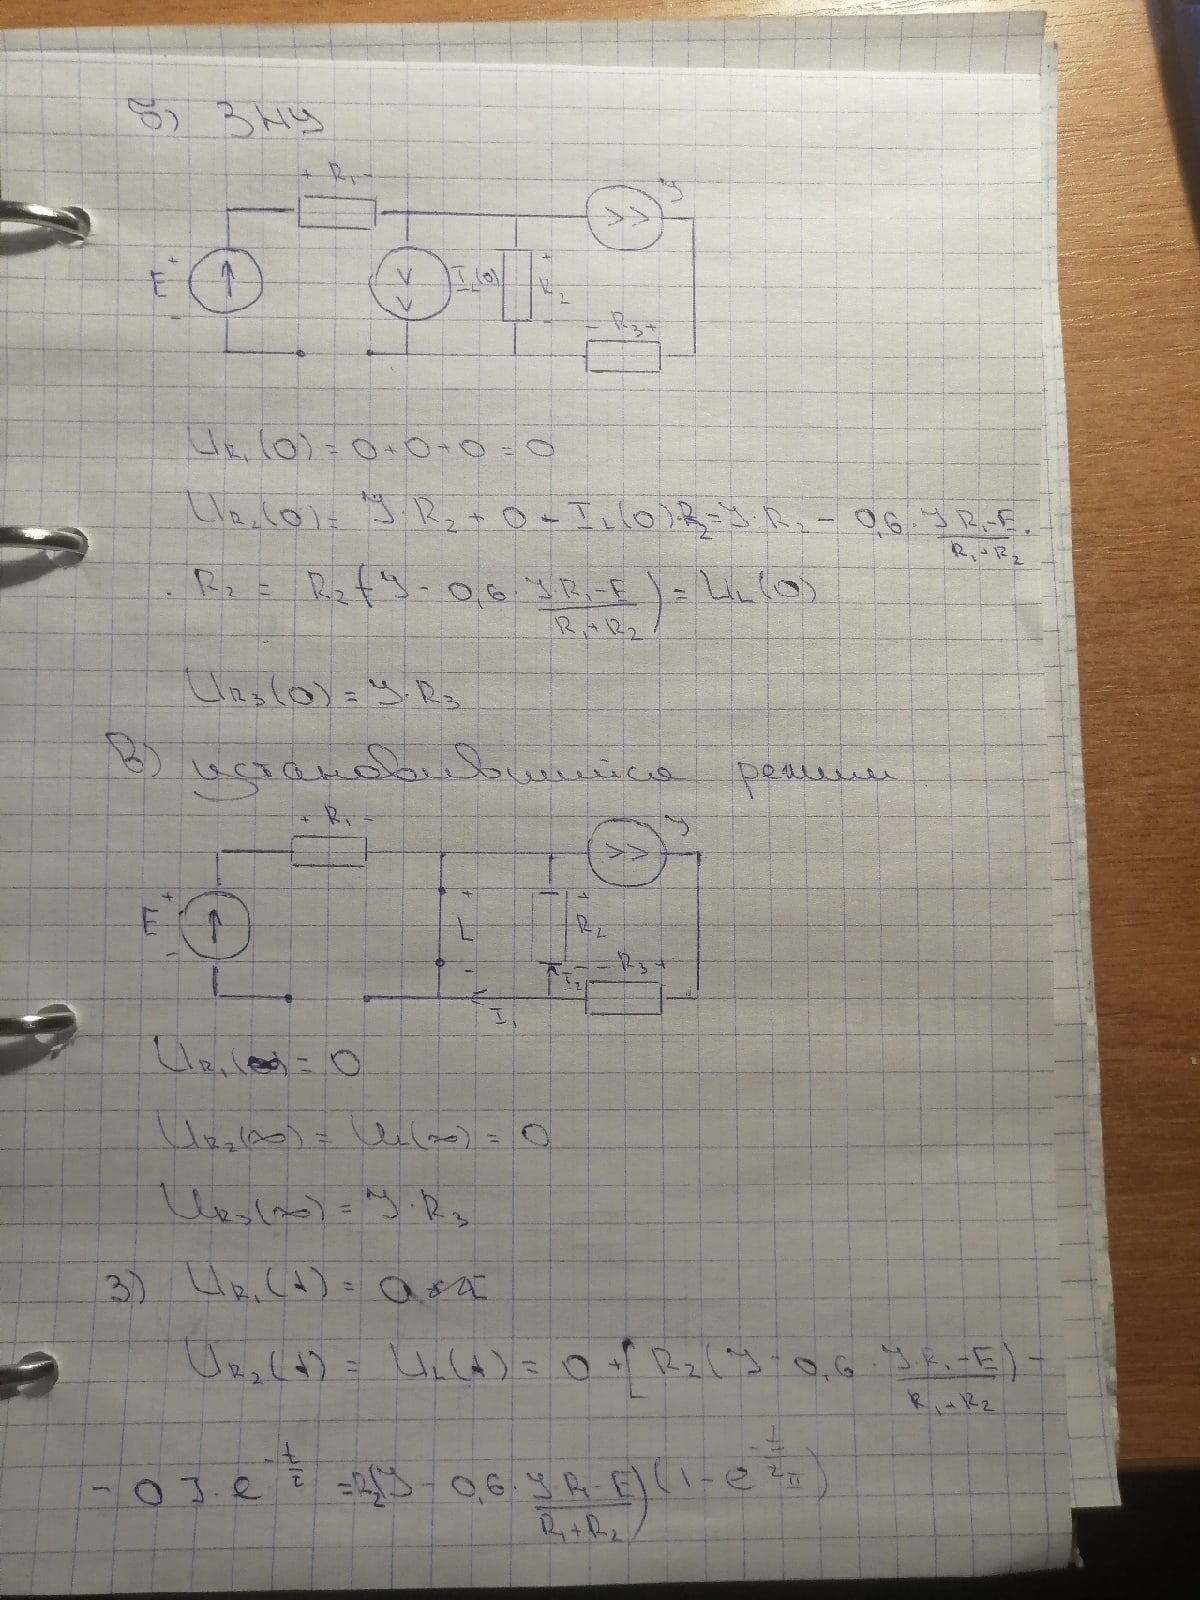 б) ЗНУ
+ R₁ -
J
E + -
I_L(0)
+ R₂ -
- R₃ +
U_R₁(0) = 0 + 0 + 0 = 0
U_R₂(0) = J · R₂ + 0 - I_L(0) · R₂ = J · R₂ - 0,6 · (J R₁ - E)/(R₁ + R₂) ·
· R₂ = R₂(J - 0,6 · (J · R₁ - E)/(R₁ + R₂)) = U_L(0)
U_R3(0) = J · R₃
в) установившийся режим
+ R₁ -
J
E + -
+ L -
+ R₂
I₂
- R₃ +
I₁
U_R₁(∞) = 0
U_R₂(∞) = U_L(∞) = 0
U_R3(∞) = J · R₃
3) U_R₁(t) = 0
U_R₂(t) = U_L(t) = 0 + [R₂(J - 0,6 · (J · R₁ - E)/(R₁ + R₂)) -
- 0] · e^(-t/τ) = R₂(J - 0,6 · (J · R₁ - E)/(R₁ + R₂))(1 - e^(-t/τ_II))